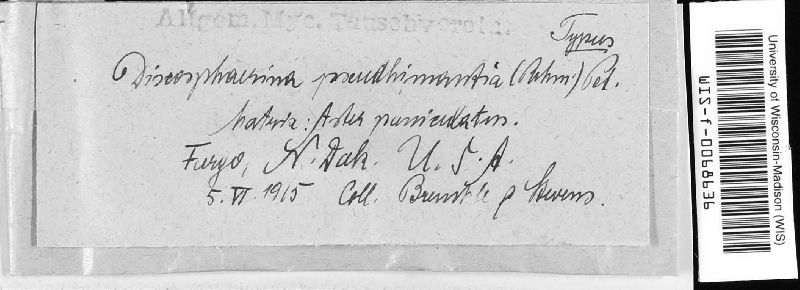 Allgem. Myc. Tauschverein.
Typus
Discosphaerina pseudhimantia (Rehm) Pet.
Matrix: Aster paniculatus.
Fargo, N. Dak. U. S. A.
5. VI. 1915 Coll. Brenckle & Stevens.
University of Wisconsin-Madison (WIS)
WIS-f-0098936